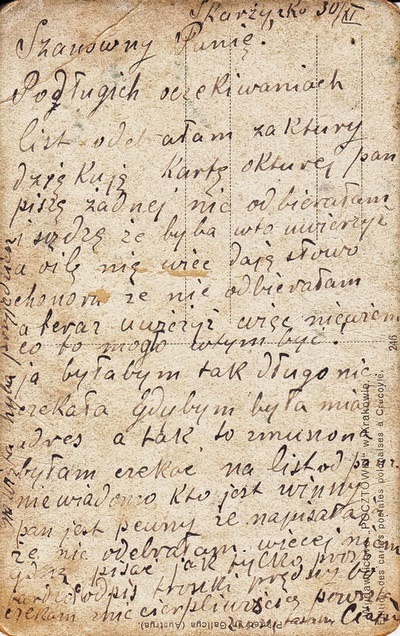 Skarżysko 30/XI
Szanowny Panie!
Podługich oczekiwaniach
list odebrałam zaktury
dziękuję kartę okturej pan
piszę żadnej nie odbierałam
i sądzę że byba wto uwierzyż
a oile nię więc daję słowo
chonoru że nie odbierałam
a teraz uwieżyż więc niewiem
co to mogło wtym być.
ja byłabym tak długo nie
czekała Gdybym była mia
adres a tak to zmuszona
byłam czekać na list od pan
niewiadomo kto jest winny
pan jest pewny że napisałam
że nie odebrałam więcej niem
pisać jak tylko proszę
odpis troski prędkiej
czekam niecierpliwością
246
"POCZTÓWKA" w Krakowie.
Union des cartes postales polonaises à Cracovie.
Galicya (Austrya)